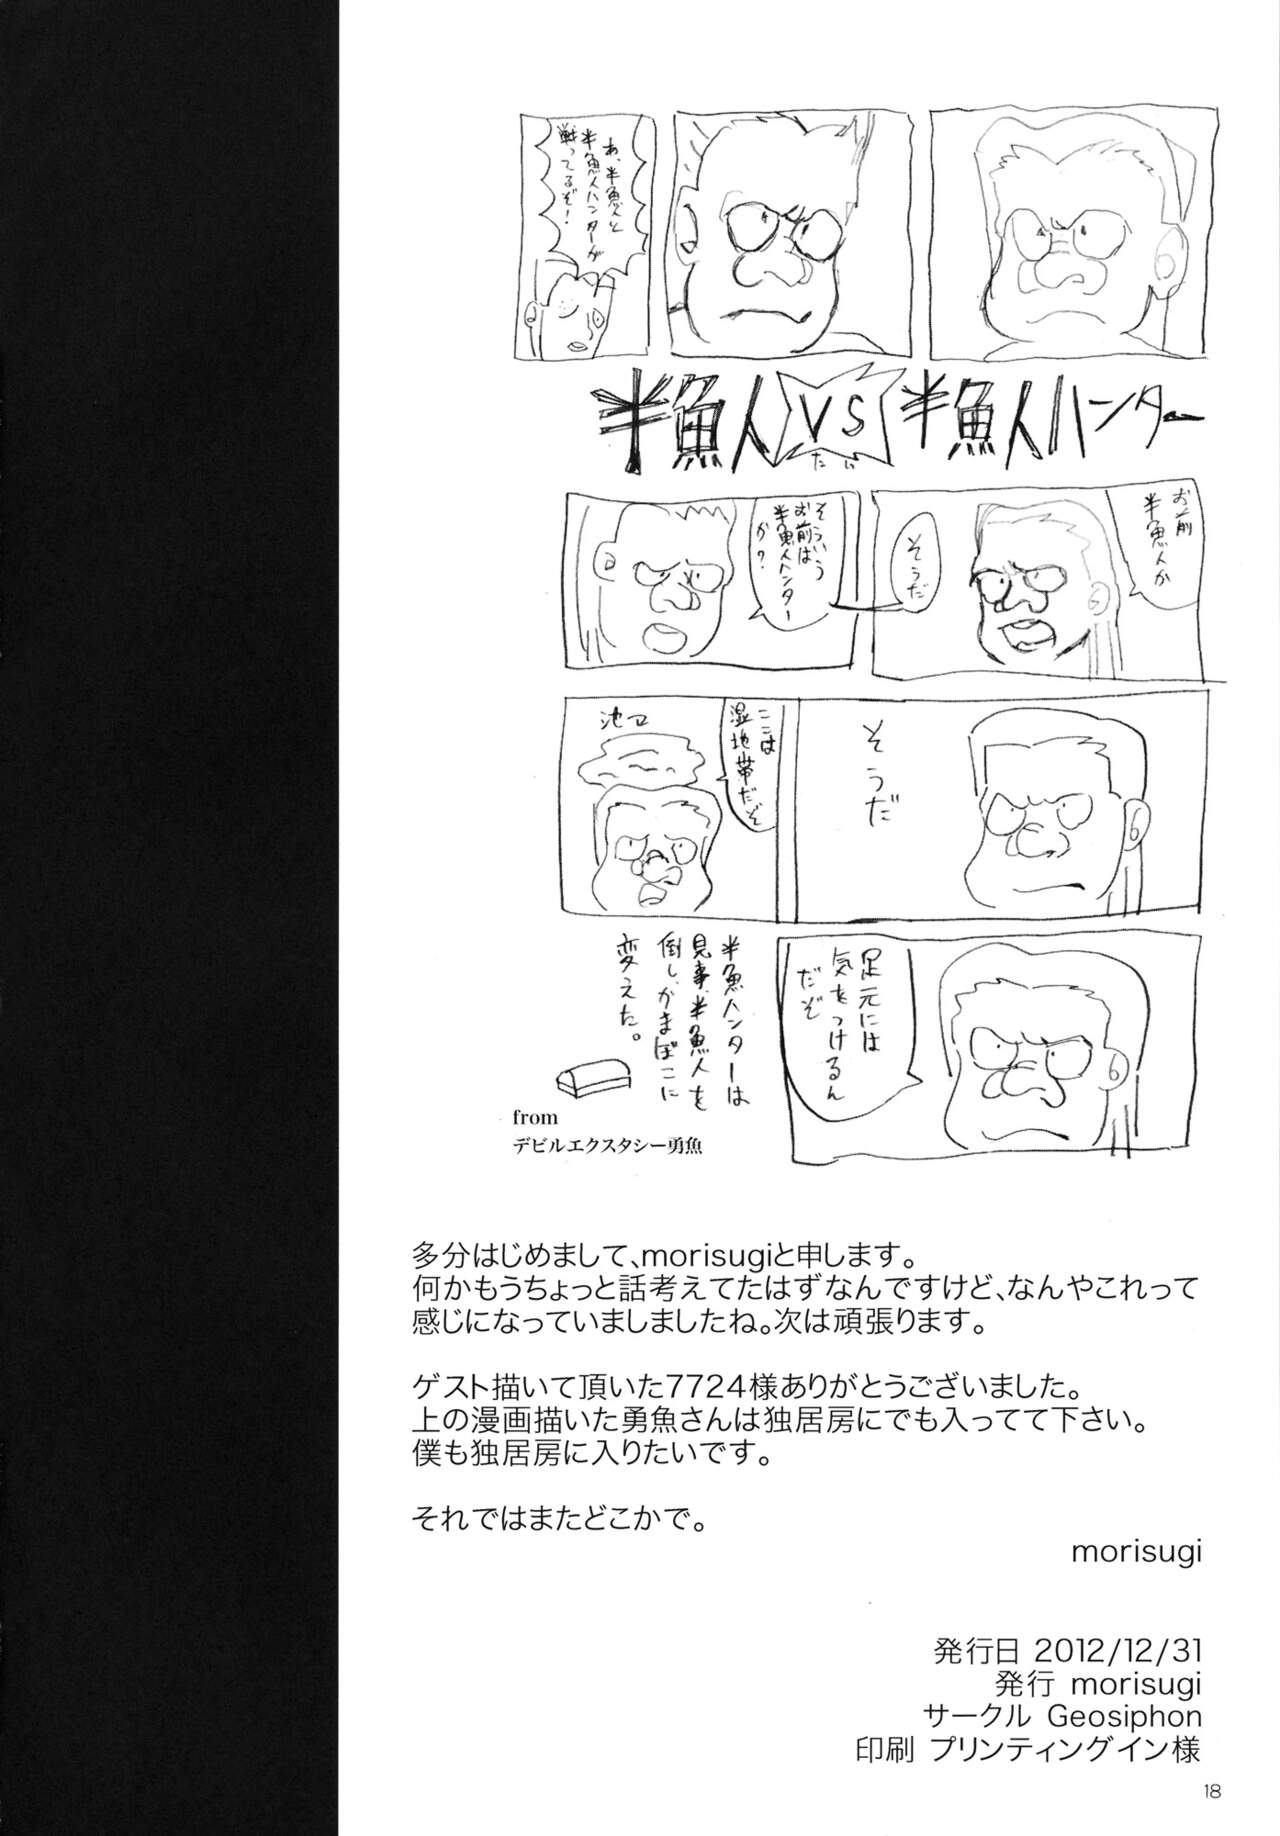 あ、半魚人と
半魚人ハンターが
戦ってるぞ！
半魚人VS半魚人ハンター
たい
お前
半魚人か
そうだ
そういう
お前は
半魚人ハンター
か？
そうだ
ここは
湿地帯だぞ
足元には
気をつけるん
だぞ
半魚ハンターは
見事、半魚人を
倒し、かまぼこに
変えた。
from
デビルエクスタシー勇魚
多分はじめまして、morisugiと申します。
何かもうちょっと話考えてたはずなんですけど、なんやこれって
感じになっていましましたね。次は頑張ります。
ゲスト描いて頂いた7724様ありがとうございました。
上の漫画描いた勇魚さんは独居房にでも入ってて下さい。
僕も独居房に入りたいです。
それではまたどこかで。
morisugi
発行日 2012/12/31
発行 morisugi
サークル Geosiphon
印刷 プリンティングイン様
18